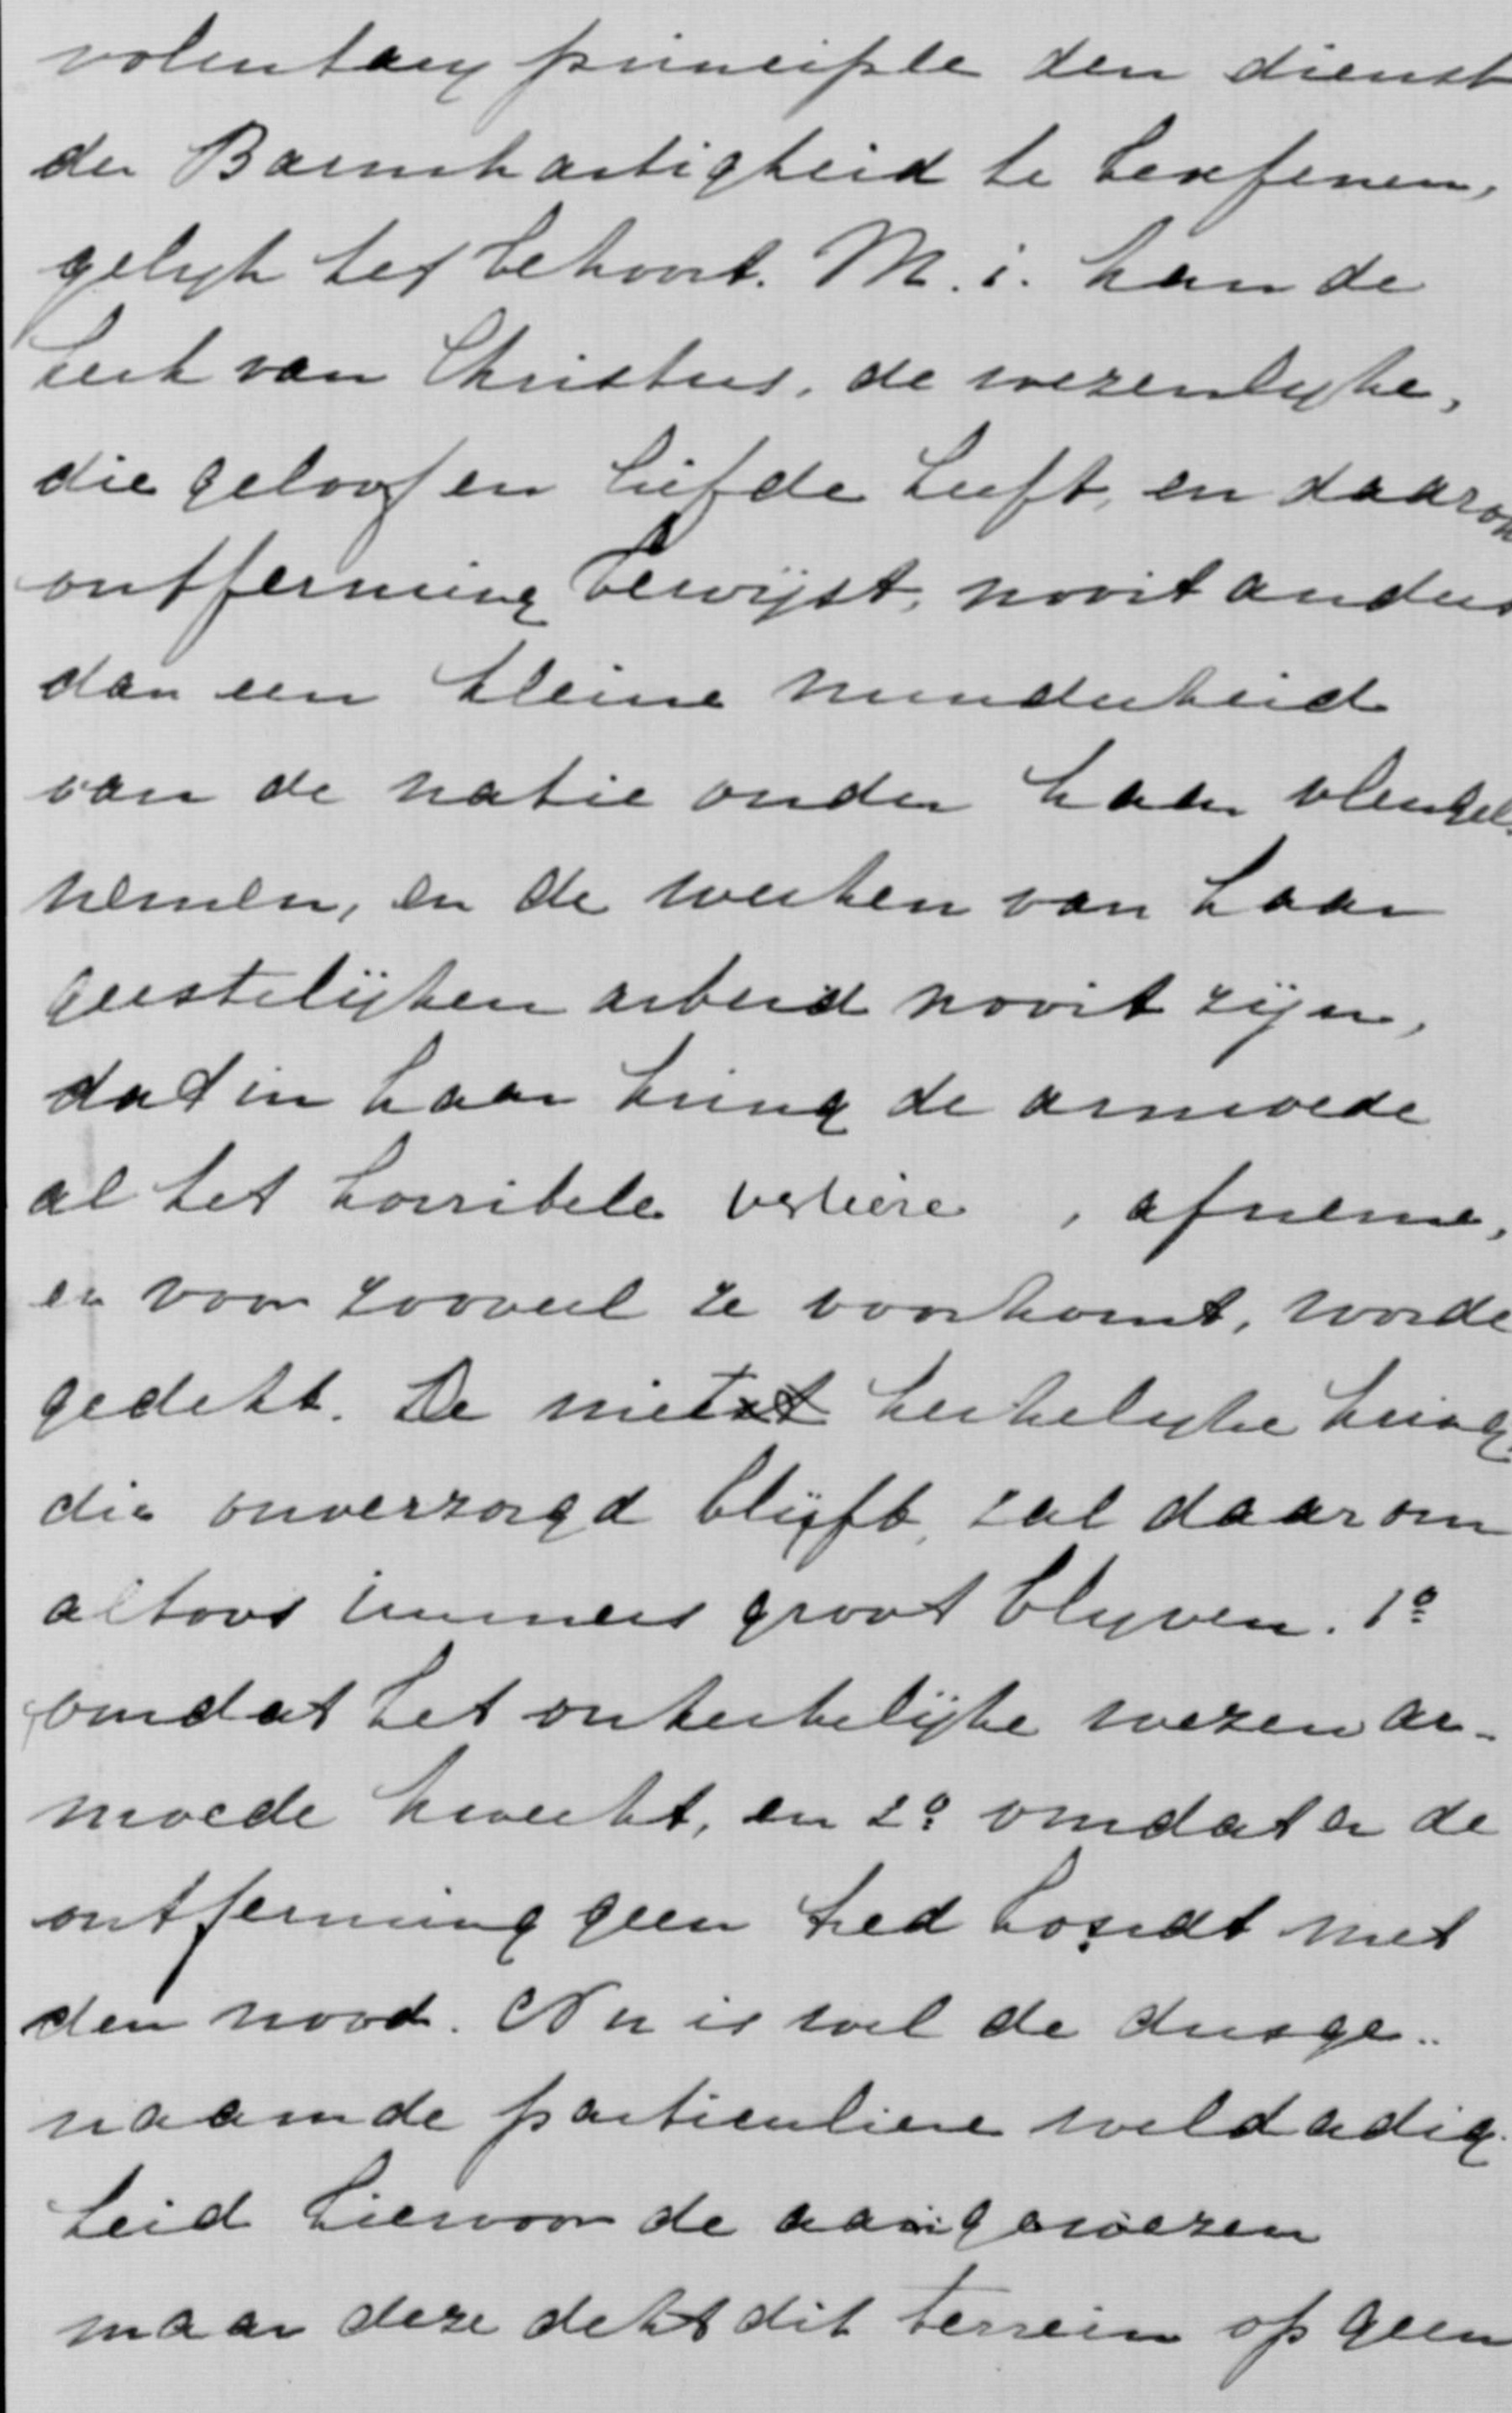 voluntary principle den dienst
der Barmhartigheid te beoefenen,
gelyk het behoort. M.i. kan de
kerk van Christus, de wezenlyke,
die geloof en liefde heeft, en daarom
ontferming bewijst, nooit anders
dan een kleine minderheid
van de natie onder haar vleugel
nemen, en de werken van haar
geestelijken arbeid nooit zijn,
dat in haar kring de armoede
al het horribele verlieze , afneme,
en voor zooveel ze voorkomt, worde
gedekt. De niet kerkelyke kring
die onverzorgd blijft, zal daarom
altoos immers groot blyven. 1º
omdat het onkerkelijke wezen ar-
moede kweekt, en 2º omdat er de
ontferming geen tred houdt met
den nood. Nu is wel de dusge-
naamde particuliere weldadig-
heid hiervoor de aangewezen
maar deze dekt dit terrein op geen